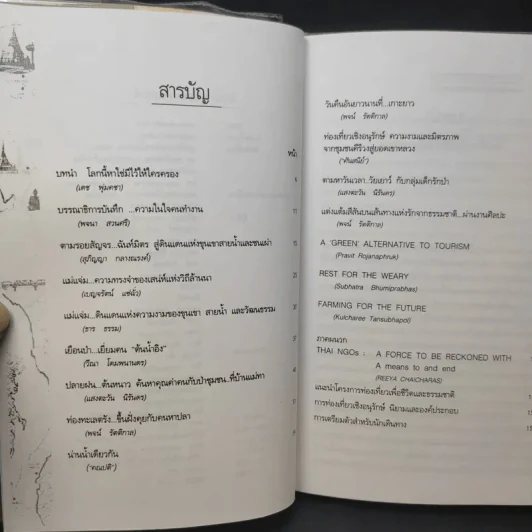 สารบัญ
หน้า
บทนำ โลกนี้หาใช่มีไว้ให้ใครครอง
(เดช พุ่มคชา)
บรรณาธิการบันทึก ...ความในใจคนทำงาน
(พจนา สวนศรี)
ตามรอยสัญจร...ฉันท์มิตร สู่ดินแดนแห่งขุนเขาสายน้ำและชนเผ่า
(สุภิญญา กลางณรงค์)
แม่แจ่ม...ความทรงจำของเสน่ห์แห่งวิถีล้านนา
(เบญจรัตน์ แซ่ฉั่ว)
แม่แจ่ม...ดินแดนแห่งความงามของขุนเขา สายน้ำ และวัฒนธรรม
(ธาร ธรรม)
เยือนป่า...เยี่ยมคน "ต้นน้ำอิง"
(วีณา โคมพนานตร)
ปลายฝน...ต้นหนาว ค้นหาคุณค่าคนกับป่าชุมชน...ที่บ้านแม่ทา
(แสงตะวัน นิรันดร)
ท่องทะเลตรัง...ขึ้นฝั่งคุยกับคนหาปลา
(พจน์ รัตติกาล)
น่านน้ำเดียวกัน
("คณปติ")
วันคืนอันยาวนานที่...เกาะยาว
(พจน์ รัตติกาล)
ท่องเที่ยวเชิงอนุรักษ์ ความงามและมิตรภาพ
จากชุมชนคีรีวงสู่ยอดเขาหลวง
("ศันสนีย์")
ตามหาวันเวลา..วัยเยาว์ กับกลุ่มเด็กรักป่า
(แสงตะวัน นิรันดร)
แต่งแต้มสีสันบนเส้นทางแห่งรักจากธรรมชาติ...ผ่านงานศิลปะ
(พจน์ รัตติกาล)
A 'GREEN' ALTERNATIVE TO TOURISM
(Pravit Rojanaphruk)
REST FOR THE WEARY
(Subhatra Bhumiprabhas)
FARMING FOR THE FUTURE
(Kulcharee Tansubhapol)
ภาคผนวก
THAI NGOs : A FORCE TO BE RECKONED WITH
A means to and end
(REEYA CHAICHARAS)
แนะนำโครงการท่องเที่ยวเพื่อชีวิตและธรรมชาติ
การท่องเที่ยวเชิงอนุรักษ์ นิยามและองค์ประกอบ
การเตรียมตัวสำหรับนักเดินทาง